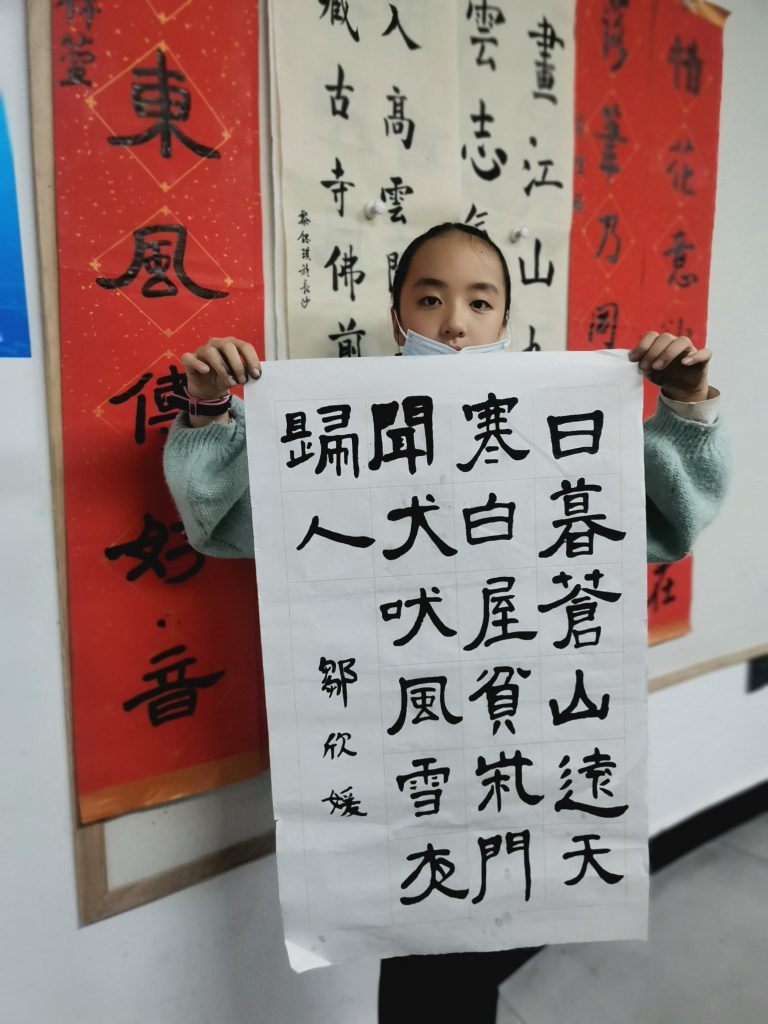 日暮蒼山遠天
寒白屋貧柴門
聞犬吠風雪夜
歸人
鄒欣媛
惜花意
筆乃同
在
畫江山
雲志氣
入高雲
藏古寺佛前
東風傳好音
萱